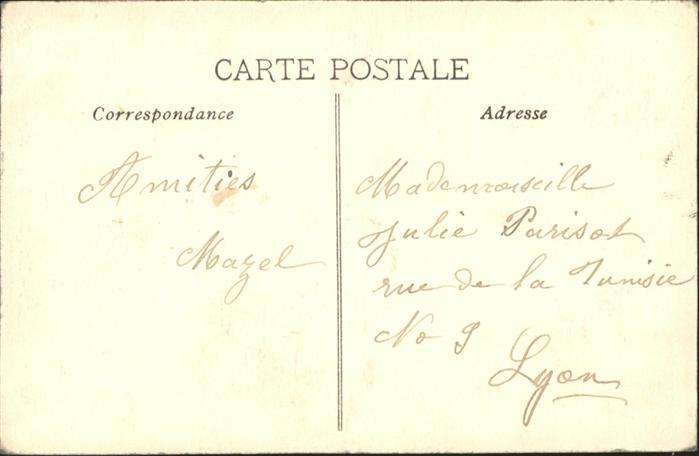 CARTE POSTALE
Correspondance
Adresse
Amities
Mazel
Mademoiselle
Julie Parisot
rue de la Tunisie
No 9
Lyon